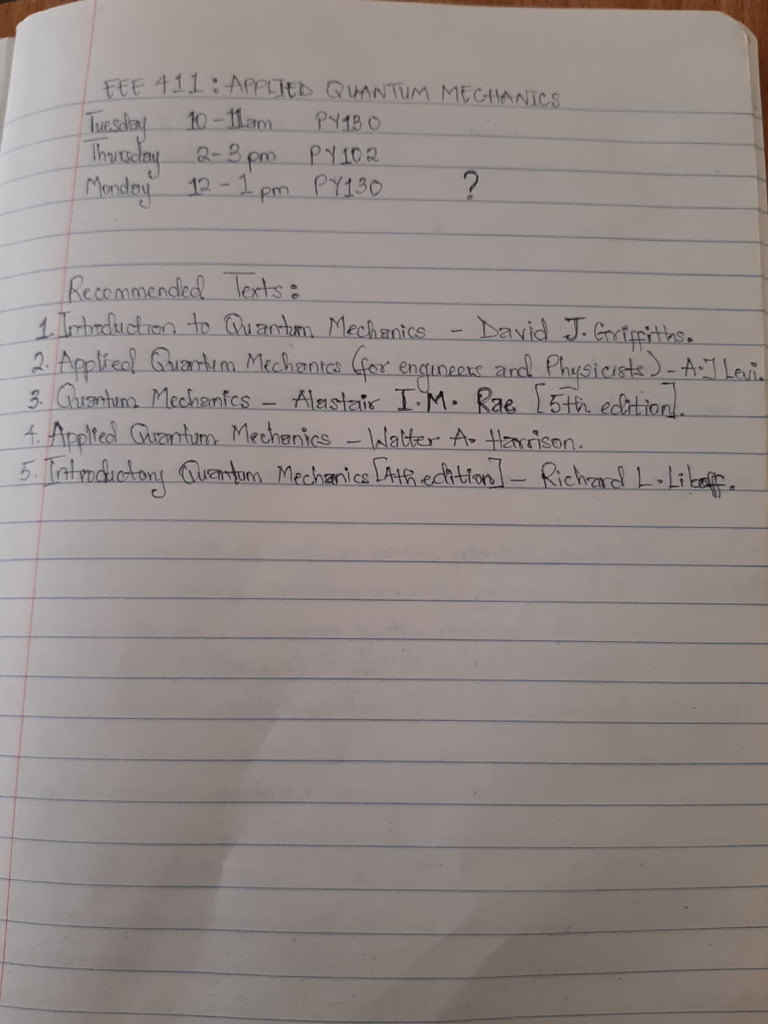 EEE 411: APPLIED QUANTUM MECHANICS
Tuesday 10-11am PY130
Thursday 2-3pm PY102
Monday 12-1pm PY130 ?
Recommended Texts:
1. Introduction to Quantum Mechanics - David J. Griffiths.
2. Applied Quantum Mechanics (for engineers and Physicists) - A.J Levi.
3. Quantum Mechanics - Alastair I.M. Rae [5th edition].
4. Applied Quantum Mechanics - Walter A. Harrison.
5. Introductory Quantum Mechanics [4th edition] - Richard L. Liboff.